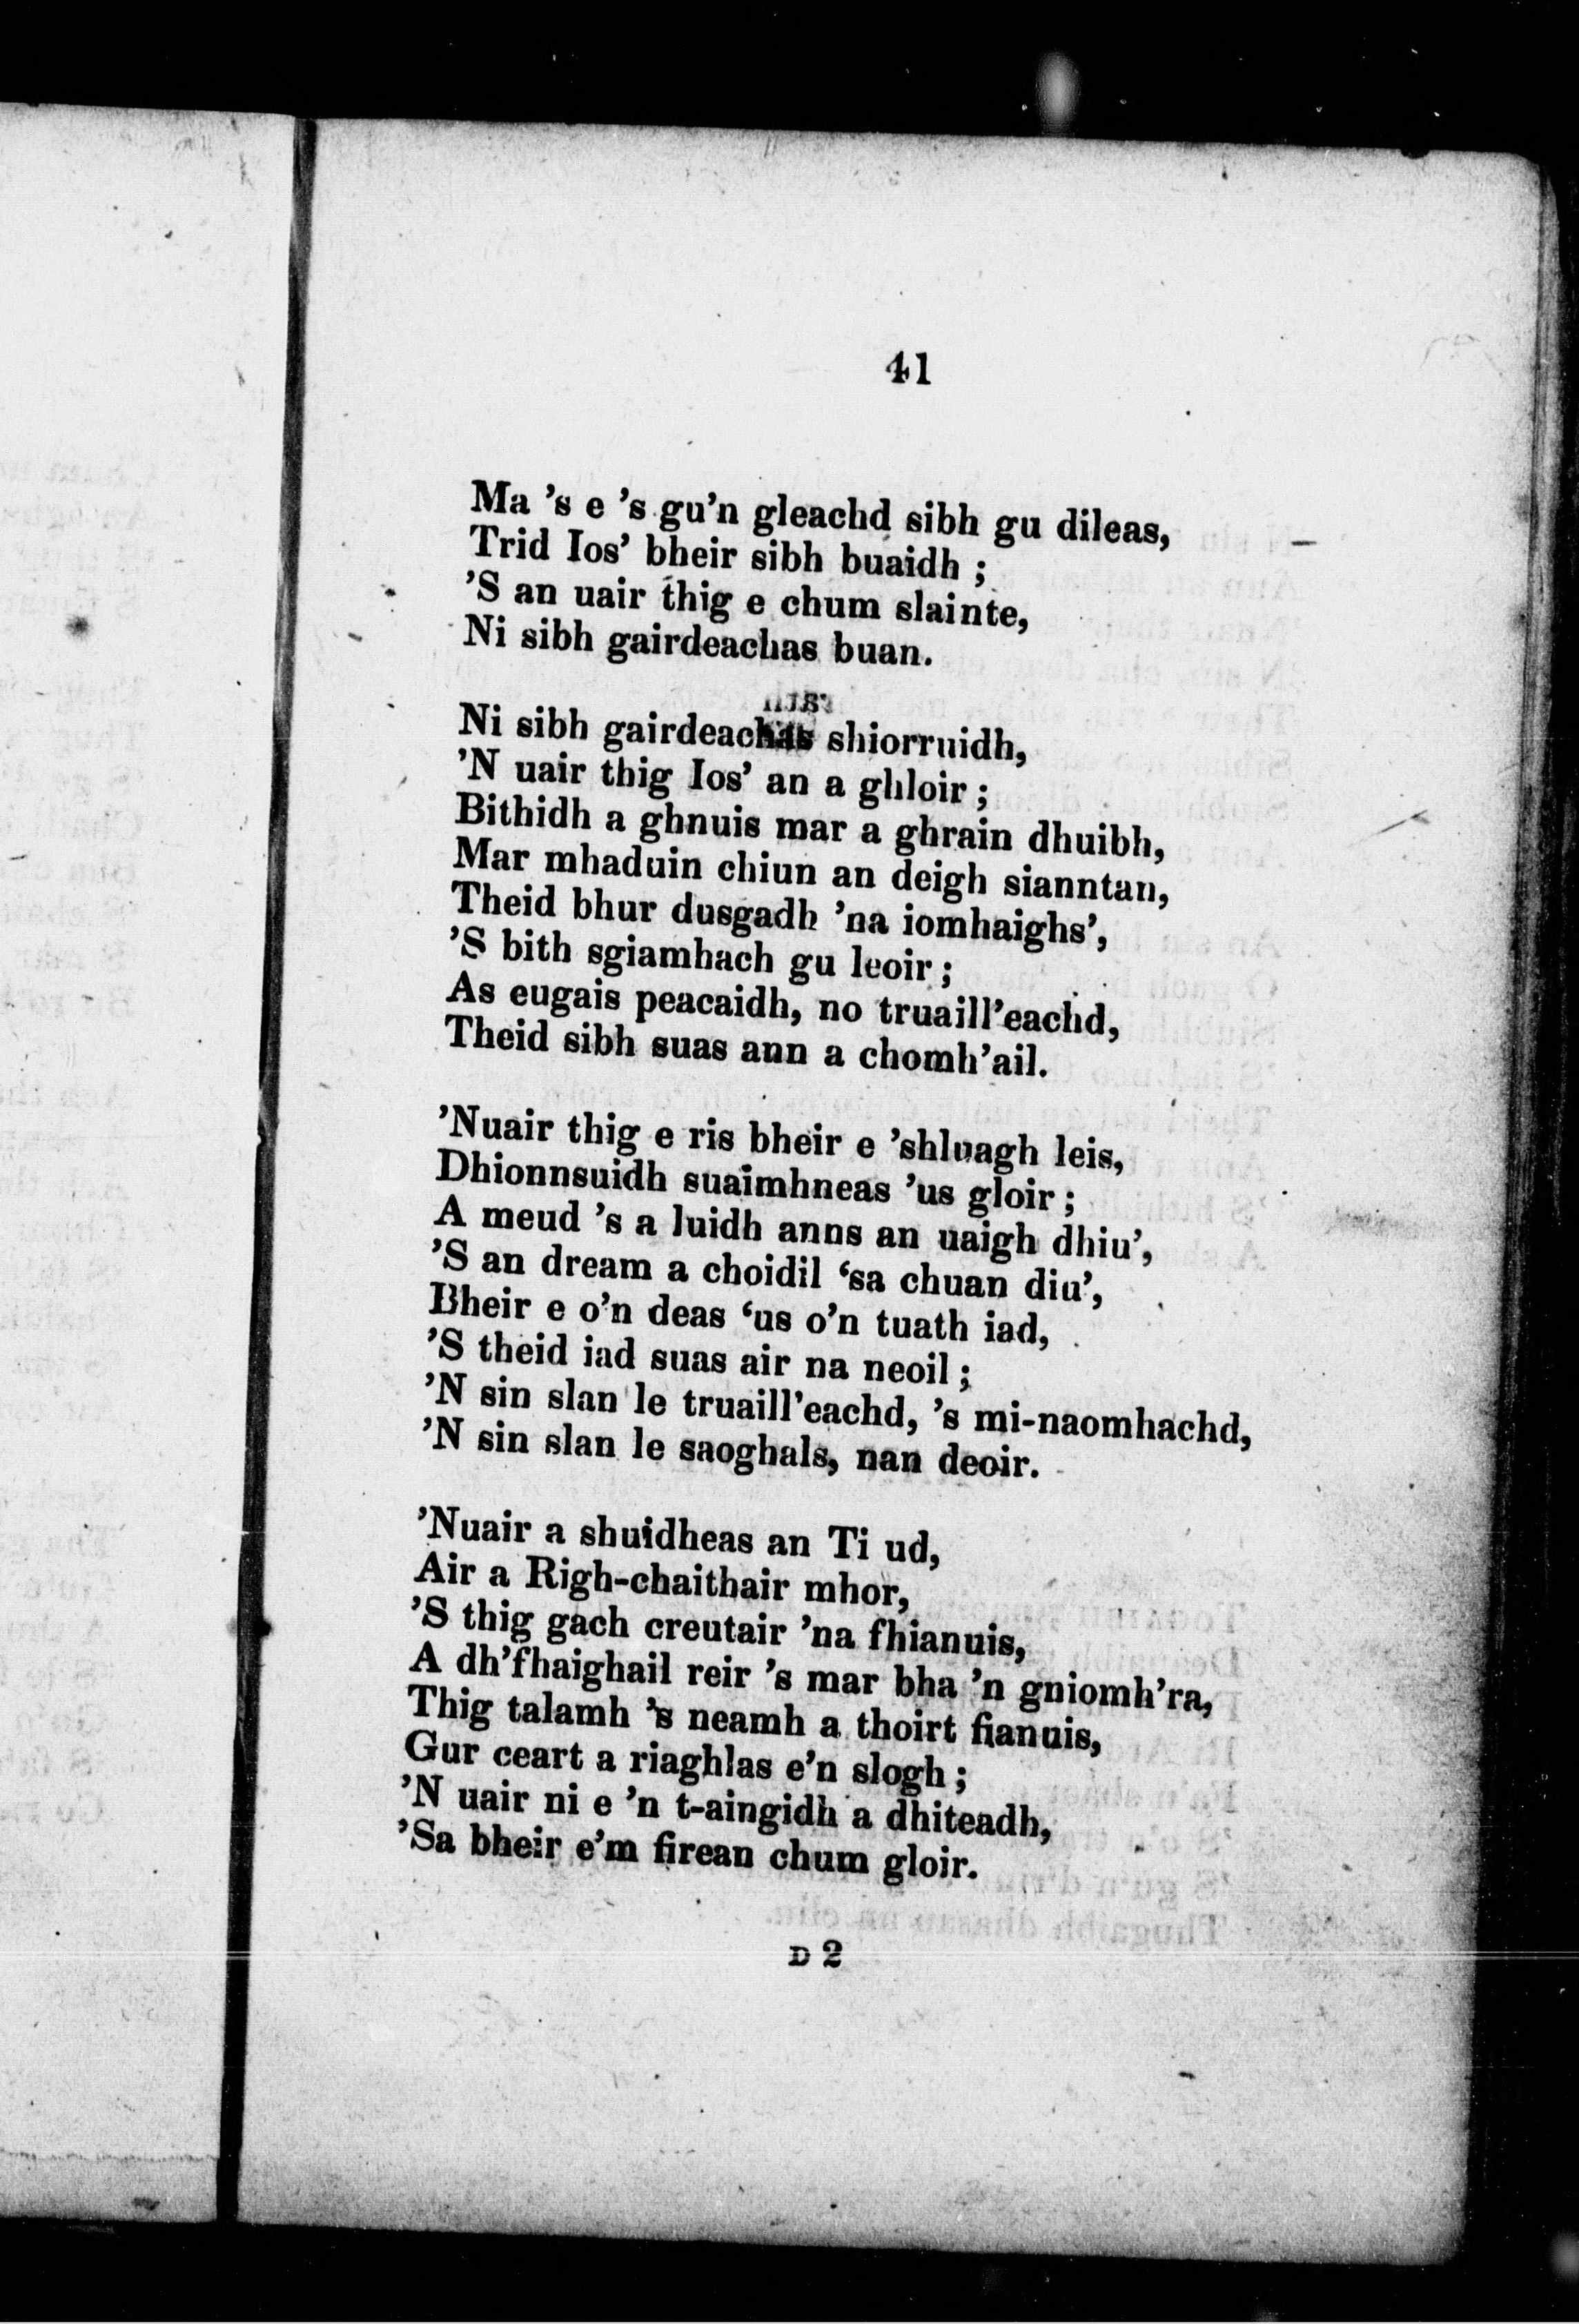 41
Ma 's e 's gu'n gleachd sibh gu dileas,
Trid Ios' bheir sibh buaidh ;
'S an uair thig e chum slainte,
Ni sibh gairdeachas buan.
Ni sibh gairdeachas shiorruidh,
'N uair thig Ios' an a ghloir ;
Bithidh a ghnuis mar a ghrain dhuibh,
Mar mhaduin chiun an deigh sianntan,
Theid bhur dusgadh 'na iomhaighs',
'S bith sgiamhach gu leoir ;
As eugais peacaidh, no truaill'eachd,
Theid sibh suas ann a chomh'ail.
'Nuair thig e ris bheir e 'shluagh leis,
Dhionnsuidh suaimhneas 'us gloir ;
A meud 's a luidh anns an uaigh dhiu',
'S an dream a choidil ‘sa chuan diu',
Bheir e o'n deas ‘us o'n tuath iad,
'S theid iad suas air na neoil ;
'N sin slan le truaill'eachd, 's mi-naomhachd,
'N sin slan le saoghals, nan deoir.
'Nuair a shuidheas an Ti ud,
Air a Righ-chaithair mhor,
'S thig gach creutair 'na fhianuis,
A dh'fhaighail reir 's mar bha 'n gniomh'ra,
Thig talamh 's neamh a thoirt fianuis,
Gur ceart a riaghlas e'n slogh ;
'N uair ni e 'n t-aingidh a dhiteadh,
'Sa bheir e'm firean chum gloir.
D 2